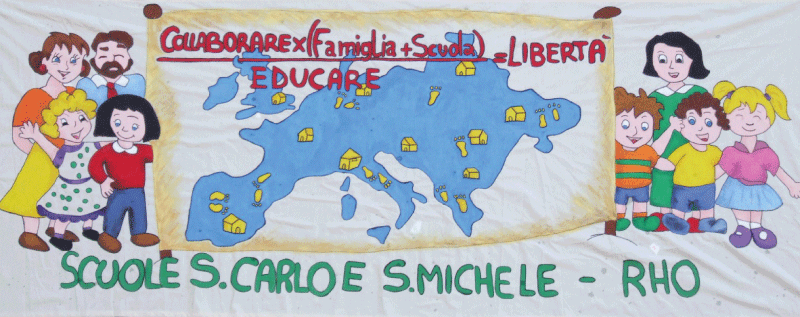 COLLABORARE x (Famiglia + Scuola) = LIBERTÀ
EDUCARE
SCUOLE S. CARLO E S. MICHELE - RHO